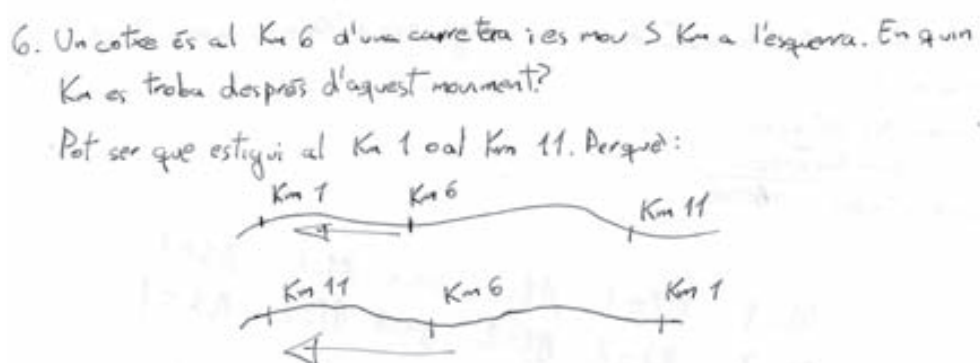 6. Un cotxe és al Km 6 d'una carretera i es mou 5 Km a l'esquerra. En quin
Km es troba després d'aquest moviment?
Pot ser que estigui al Km 1 o al Km 11. Perquè:
Km 1 Km 6 Km 11
Km 11 Km 6 Km 1